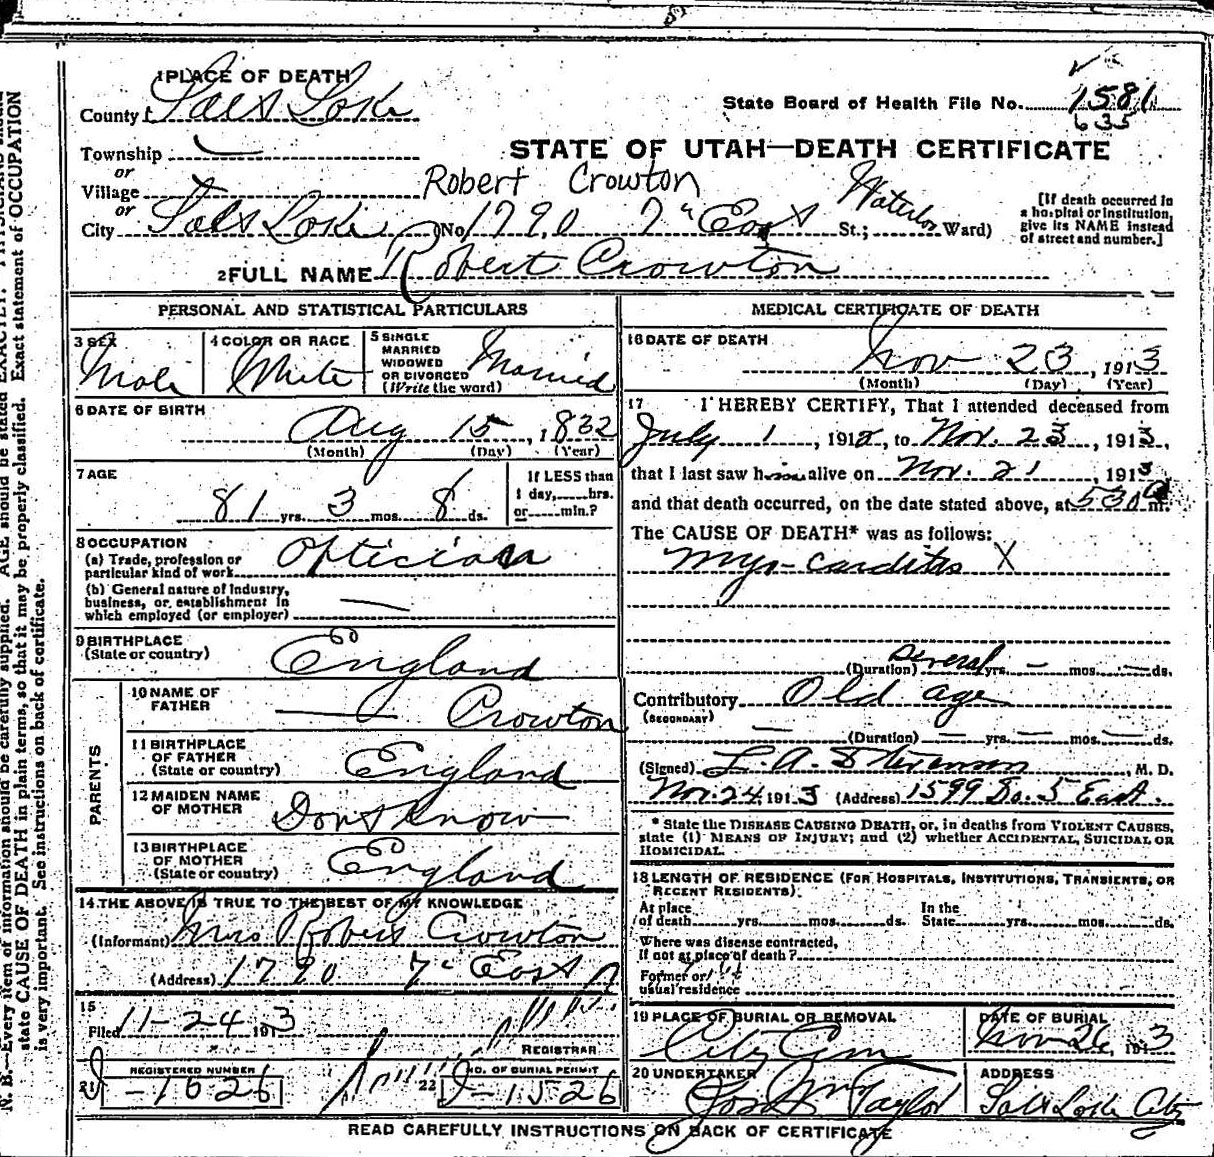 1 PLACE OF DEATH
County Salt Lake
State Board of Health File No. 1581
635
Township
or
STATE OF UTAH—DEATH CERTIFICATE
Village
Robert Crowton
or
City Salt Lake (No. 1790 7" East St.; Waterloo Ward)
[If death occurred in
a hospital or institution,
give its NAME instead
of street and number.]
2 FULL NAME Robert Crowton
PERSONAL AND STATISTICAL PARTICULARS
3 SEX
Male
4 COLOR OR RACE
White
5 SINGLE
MARRIED
WIDOWED
OR DIVORCED
(Write the word)
Married
6 DATE OF BIRTH
Aug 15, 1832
(Month) (Day) (Year)
7 AGE
81 yrs. 3 mos. 8 ds.
If LESS than
1 day,....hrs.
or....min.?
8 OCCUPATION
(a) Trade, profession or
particular kind of work Optician
(b) General nature of Industry,
business, or establishment in
which employed (or employer)
9 BIRTHPLACE
(State or country) England
PARENTS
10 NAME OF
FATHER Crowton
11 BIRTHPLACE
OF FATHER
(State or country) England
12 MAIDEN NAME
OF MOTHER Dont Know
13 BIRTHPLACE
OF MOTHER
(State or country) England
14 THE ABOVE IS TRUE TO THE BEST OF MY KNOWLEDGE
(Informant) Mrs Robert Crowton
(Address) 1790 7" East
15
Filed 11-24 1913
REGISTRAR
21 REGISTERED NUMBER
-1626
22 NO. OF BURIAL PERMIT
-1526
MEDICAL CERTIFICATE OF DEATH
16 DATE OF DEATH
Nov 23, 1913
(Month) (Day) (Year)
17 I HEREBY CERTIFY, That I attended deceased from
July 1, 1912, to Nov. 23, 1913,
that I last saw him alive on Nov. 21, 1913
and that death occurred, on the date stated above, at 530 a m.
The CAUSE OF DEATH* was as follows:
Myo-carditis X
(Duration) several yrs. — mos. — ds.
Contributory Old age
(SECONDARY)
(Duration) — yrs. — mos. — ds.
(Signed) L. A. Stevenson, M. D.
Nov. 24, 1913 (Address) 1599 So. 5 East.
* State the DISEASE CAUSING DEATH, or, in deaths from VIOLENT CAUSES,
state (1) MEANS OF INJURY; and (2) whether ACCIDENTAL, SUICIDAL OR
HOMICIDAL.
18 LENGTH OF RESIDENCE (FOR HOSPITALS, INSTITUTIONS, TRANSIENTS, OR
RECENT RESIDENTS).
At place
of death....yrs....mos....ds.
In the
State....yrs....mos....ds.
Where was disease contracted,
If not at place of death?
Former or
usual residence
19 PLACE OF BURIAL OR REMOVAL
City Cem
DATE OF BURIAL
Nov 26, 1913
20 UNDERTAKER
Jos Wm Taylor
ADDRESS
Salt Lake City
READ CAREFULLY INSTRUCTIONS ON BACK OF CERTIFICATE
N. B.—Every item of information should be carefully supplied. AGE should be stated EXACTLY.
state CAUSE OF DEATH in plain terms, so that it may be properly classified. Exact statement of OCCUPATION
is very important. See instructions on back of certificate.